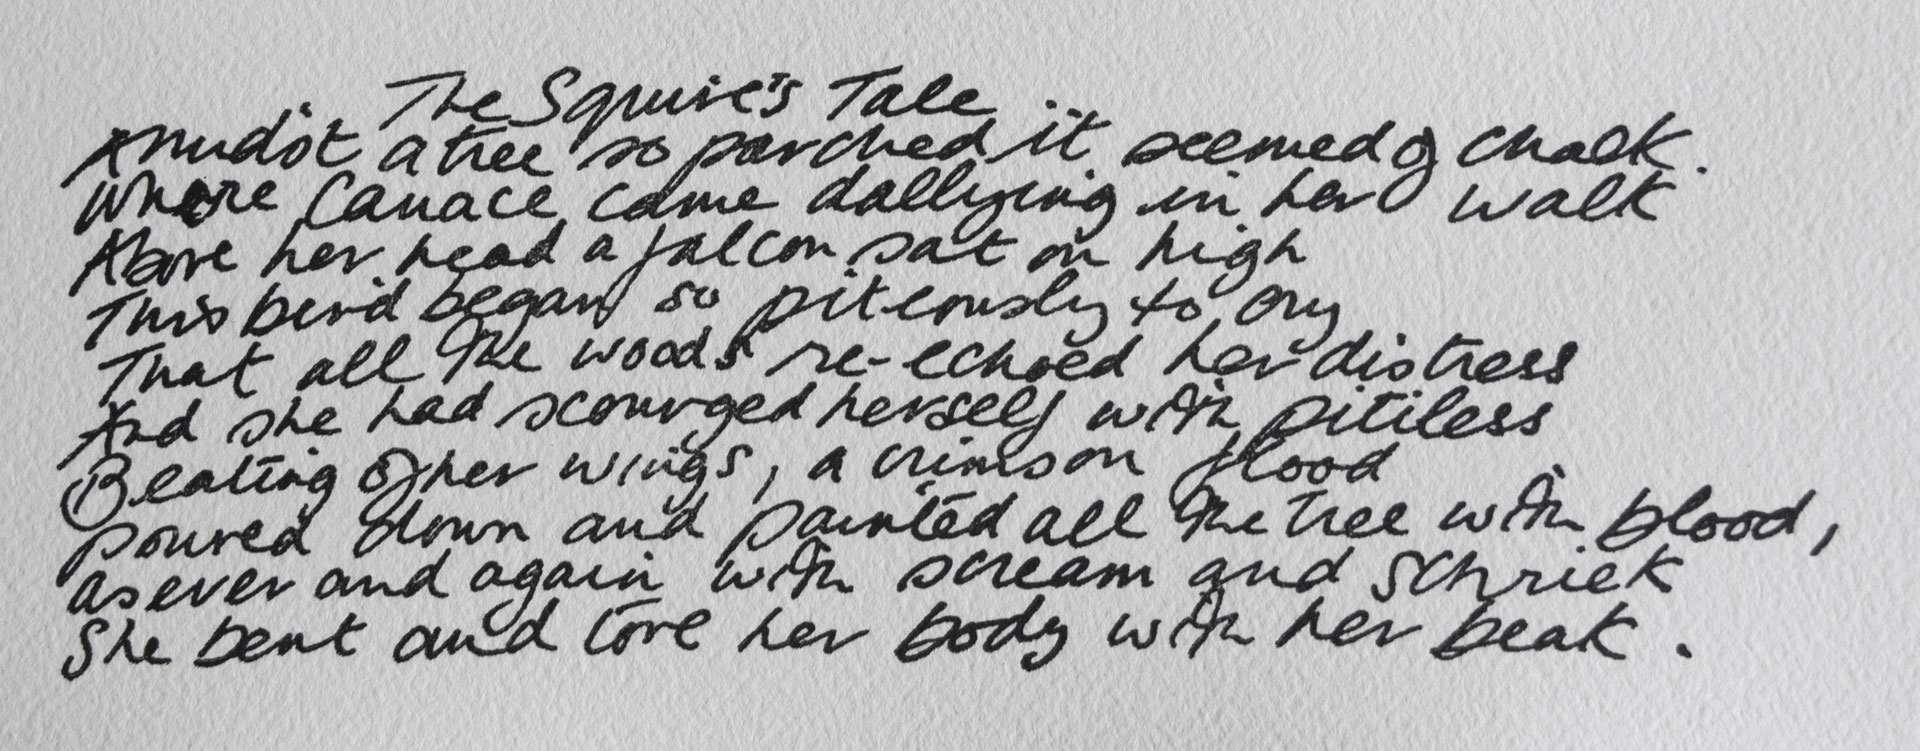 The Squire's Tale
Amidst a tree so parched it seemed of chalk.
Where Canace came dallying in her walk
Above her head a falcon sat on high
This bird began so piteously to cry
That all the woods re-echoed her distress
And she had scourged herself with pitiless
Beating of her wings, a crimson flood
poured down and painted all the tree with blood,
as ever and again with scream and schriek
She bent and tore her body with her beak.